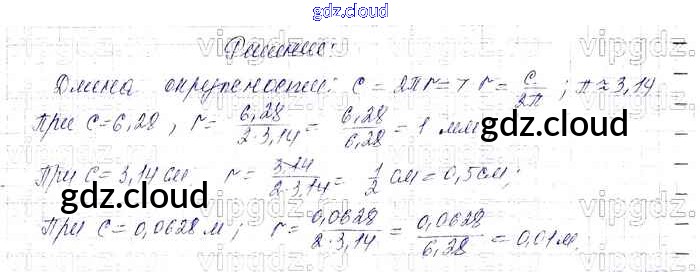 gdz.cloud
Решение:
Длина окружности: C = 2πr => r = C/2π ; π ≈ 3,14
При C = 6,28 , r = 6,28/2·3,14 = 6,28/6,28 = 1 мм
gdz.cloud
При C = 3,14 см r = 3,14/2·3,14 = 1/2 см = 0,5 см;
gdz.cloud
gdz.cloud
При C = 0,0628 м; r = 0,0628/2·3,14 = 0,0628/6,28 = 0,01 м.